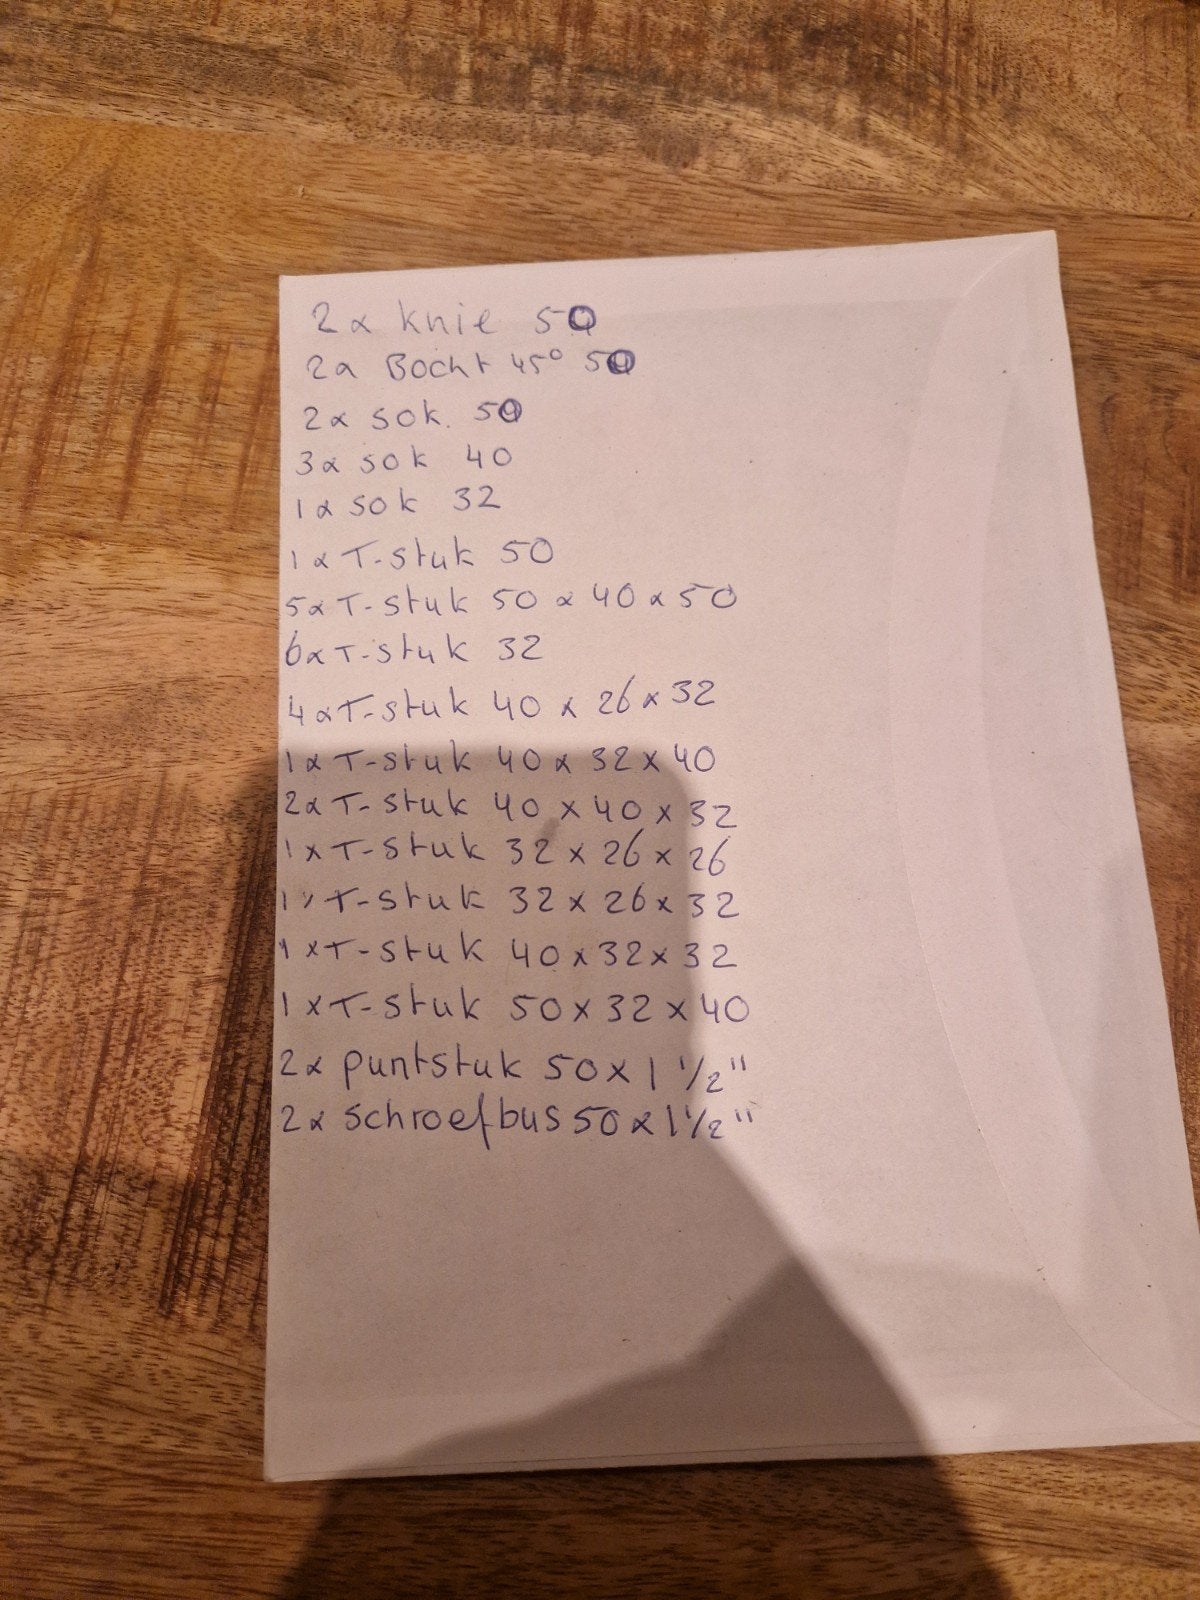 2x knie 50
2x Bocht 45° 50
2x sok. 50
3x sok 40
1x sok 32
1x T-stuk 50
5x T-stuk 50 x 40 x 50
6x T-stuk 32
4x T-stuk 40 x 26 x 32
1x T-stuk 40 x 32 x 40
2x T-stuk 40 x 40 x 32
1x T-stuk 32 x 26 x 26
1x T-stuk 32 x 26 x 32
1x T-stuk 40 x 32 x 32
1x T-stuk 50 x 32 x 40
2x puntstuk 50 x 1 1/2"
2x schroefbus 50 x 1 1/2"